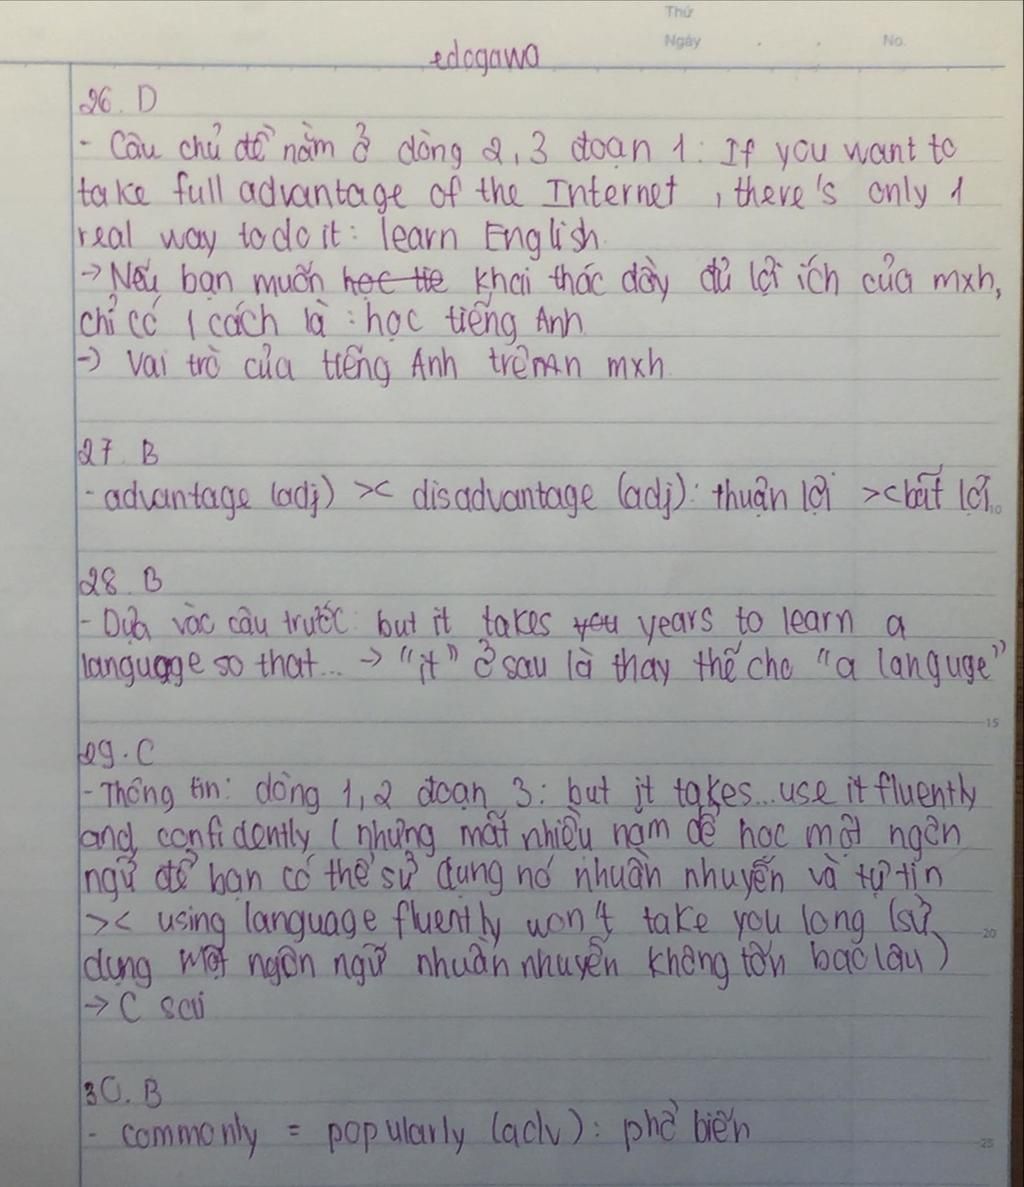 Thứ
Ngày . . No.
edogawa
26. D
- Câu chủ đề nằm ở dòng 2, 3 đoạn 1: If you want to
take full advantage of the Internet, there's only 1
real way to do it: learn English.
→ Nếu bạn muốn học tiế khai thác đầy đủ lợi ích của mxh,
chỉ có 1 cách là: học tiếng Anh
→ Vai trò của tiếng Anh trên mxh
27. B
- advantage (adj) >< disadvantage (adj): thuận lợi >< bất lợi
10
28. B
- Dựa vào câu trước: but it takes you years to learn a
language so that... → "it" ở sau là thay thế cho "a languge"
15
29. C
- Thông tin: dòng 1, 2 đoạn 3: but it takes... use it fluently
and confidently (nhưng mất nhiều năm để học một ngôn
ngữ để bạn có thể sử dụng nó nhuần nhuyễn và tự tin
>< using language fluently won't take you long (sử
20
dụng một ngôn ngữ nhuần nhuyễn không tốn bao lâu)
→ C sai
30. B
- commonly = popularly (adv): phổ biến
25